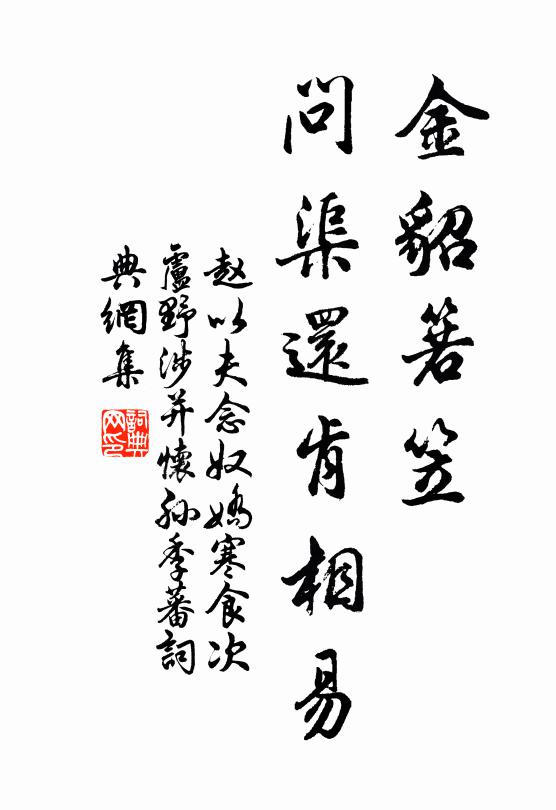 金貂箬笠
問渠還肯相易
赵以夫念奴嬌寒食次
盧野涉并懷孙季蕃詞
典網集
詞典
网印